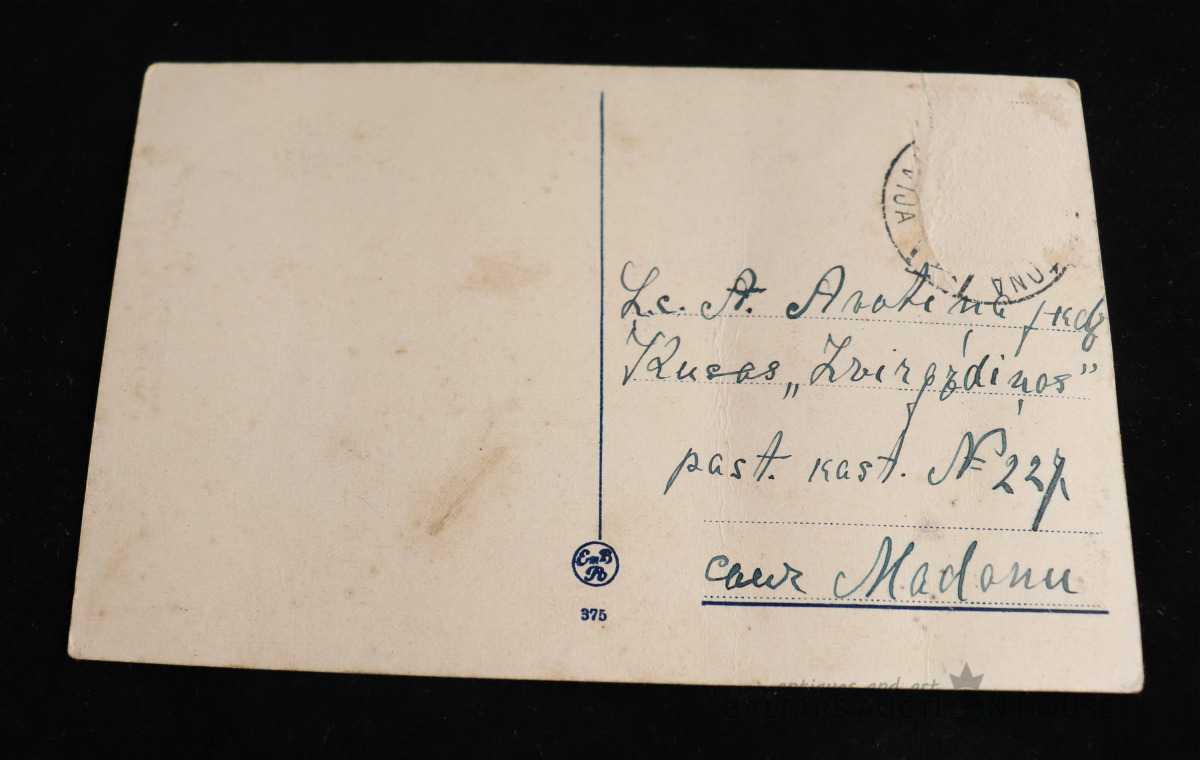 VIJA
ONA
L.c. A. Avotiņa jkdz
Kusas „Zvirgzdiņos”
past. kast. № 227,
caur Madonu
EmB
Rō
375
antiques and art
BALTARS AUCTION HOUSE